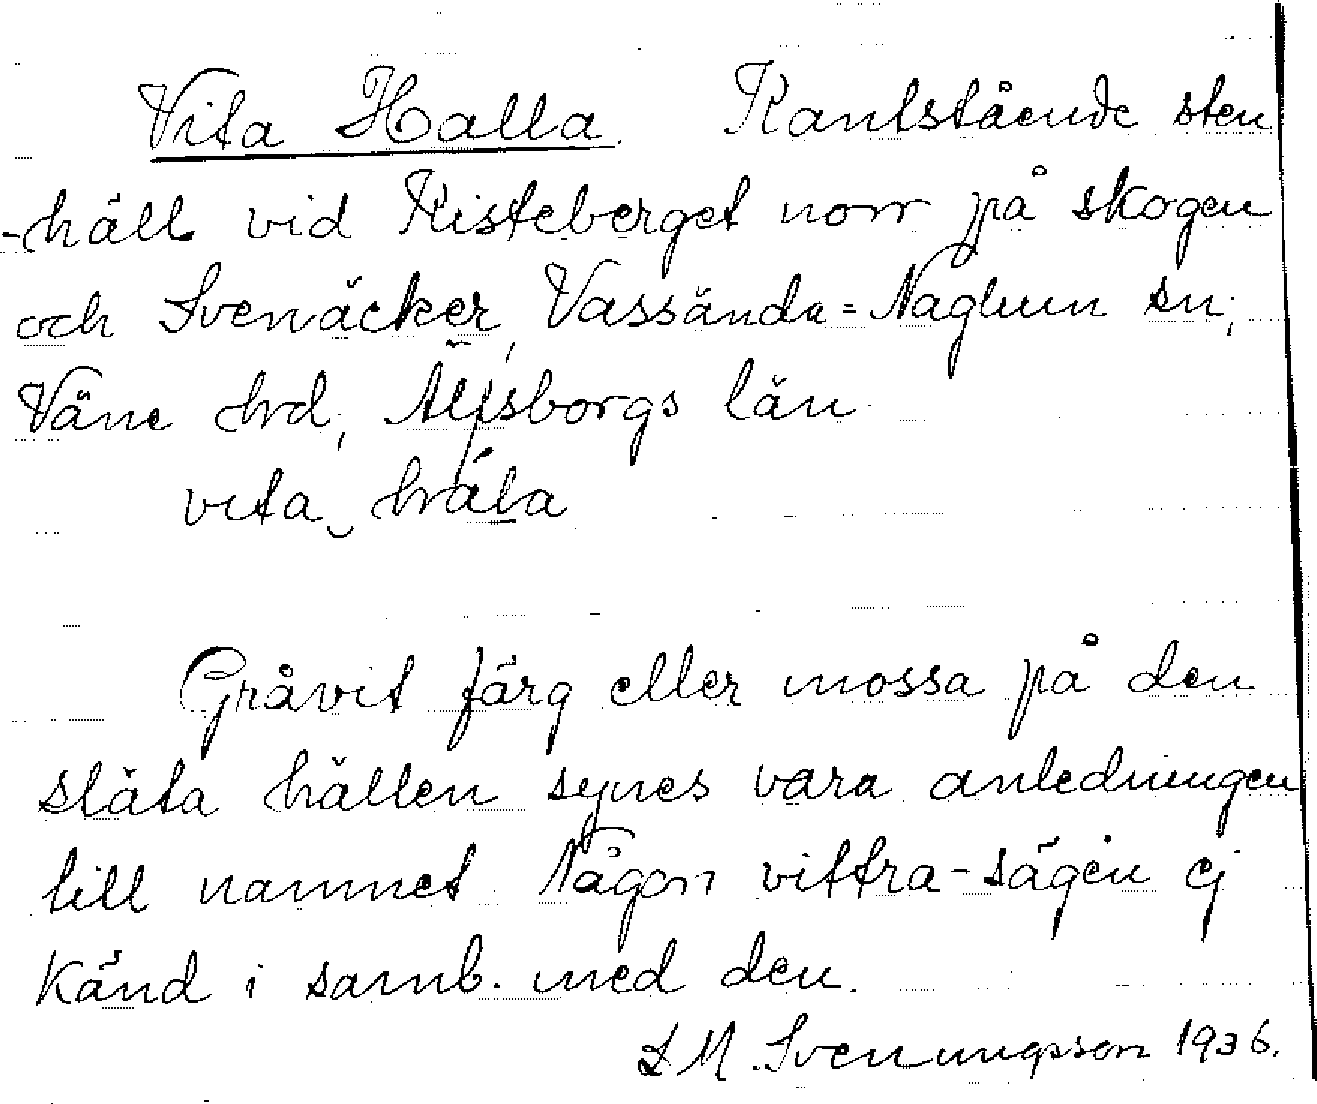 Vita Halla. Kantstående sten
-häll vid Kisteberget norr på skogen
och Svenäcker, Vassända=Naglum sn,
Väne hrd, Älfsborgs län
vita
Gråvit färg eller mossa på den
släta hällen synes vara anledningen
till namnet. Någon vittra-sägen ej
känd i samb. med den.
M. Svenungsson 1936.